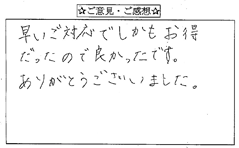 ☆ご意見・ご感想☆
早いご対応でしかもお得
だったので良かったです。
ありがとうございました。